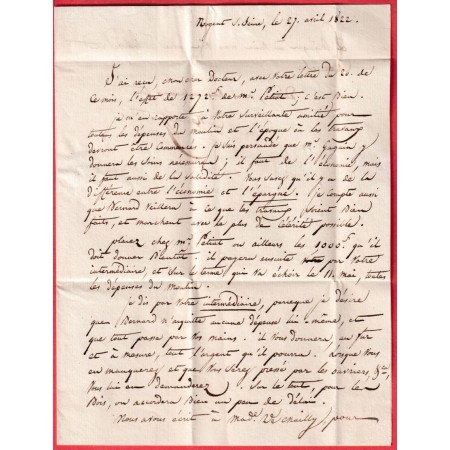 Nogent s. Seine, le 27. avril 1822.
J'ai reçu, mon cher Docteur, avec votre lettre du 20. de
ce mois, l'effet de 1272f de mr. Petit; c'est bien.
Je m'en rapporte à votre surveillante amitié pour
toutes les dépenses du moulin et l'époque où les travaux
devront être commencés. Je suis persuadé que mr.
donnera les soins nécessaires; il faut de l'économie, mais
il faut aussi de la solidité. Vous savez qu'il y a de la
différence entre l'économie et l'épargne. Je compte aussi
que Bernard veillera à ce que les travaux soient bien
faits, et marchent avec le plus de célérité possible.
placez chez mr. Petit ou ailleurs les 1000f. qu'il
doit donner bientôt; il payera ensuite par votre
intermédiaire, et sur le terme qui va échoir le 11. mai, toutes
les dépenses du moulin.
je dis par votre intermédiaire, parceque je désire
que Bernard n'acquitte aucune dépense lui-même, et
que tout passe par vos mains. il vous donnera, au fur
et à mesure, tout l'argent qu'il pourra. Lorsque vous
en manquerez et que vous serez pressé par les ouvriers &ca,
vous lui en demanderez. Sur le tout, pour le
bois, on accordera bien un peu de délai.
Nous avons écrit à Made. pour